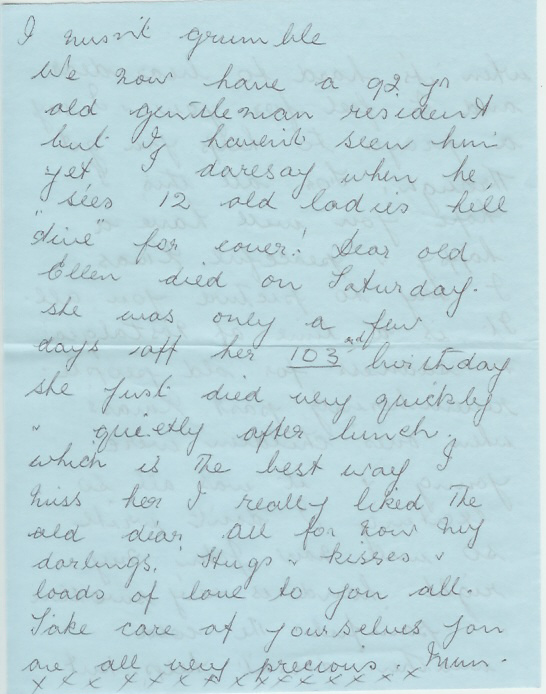 I musn't grumble
We now have a 92 yr
old gentleman resident
but I haven't seen him
yet I daresay when he
sees 12 old ladies he'll
"dive" for cover! Dear old
Ellen died on Saturday.
she was only a few
days off her 103rd birthday
she just died very quickly
& quietly after lunch.
which is the best way I
miss her I really liked the
old dear. All for now my
darlings. Hugs & kisses &
loads of love to you all.
Take care of yourselves you
are all very precious. Mum.
x x x x x x x x x x x x x x